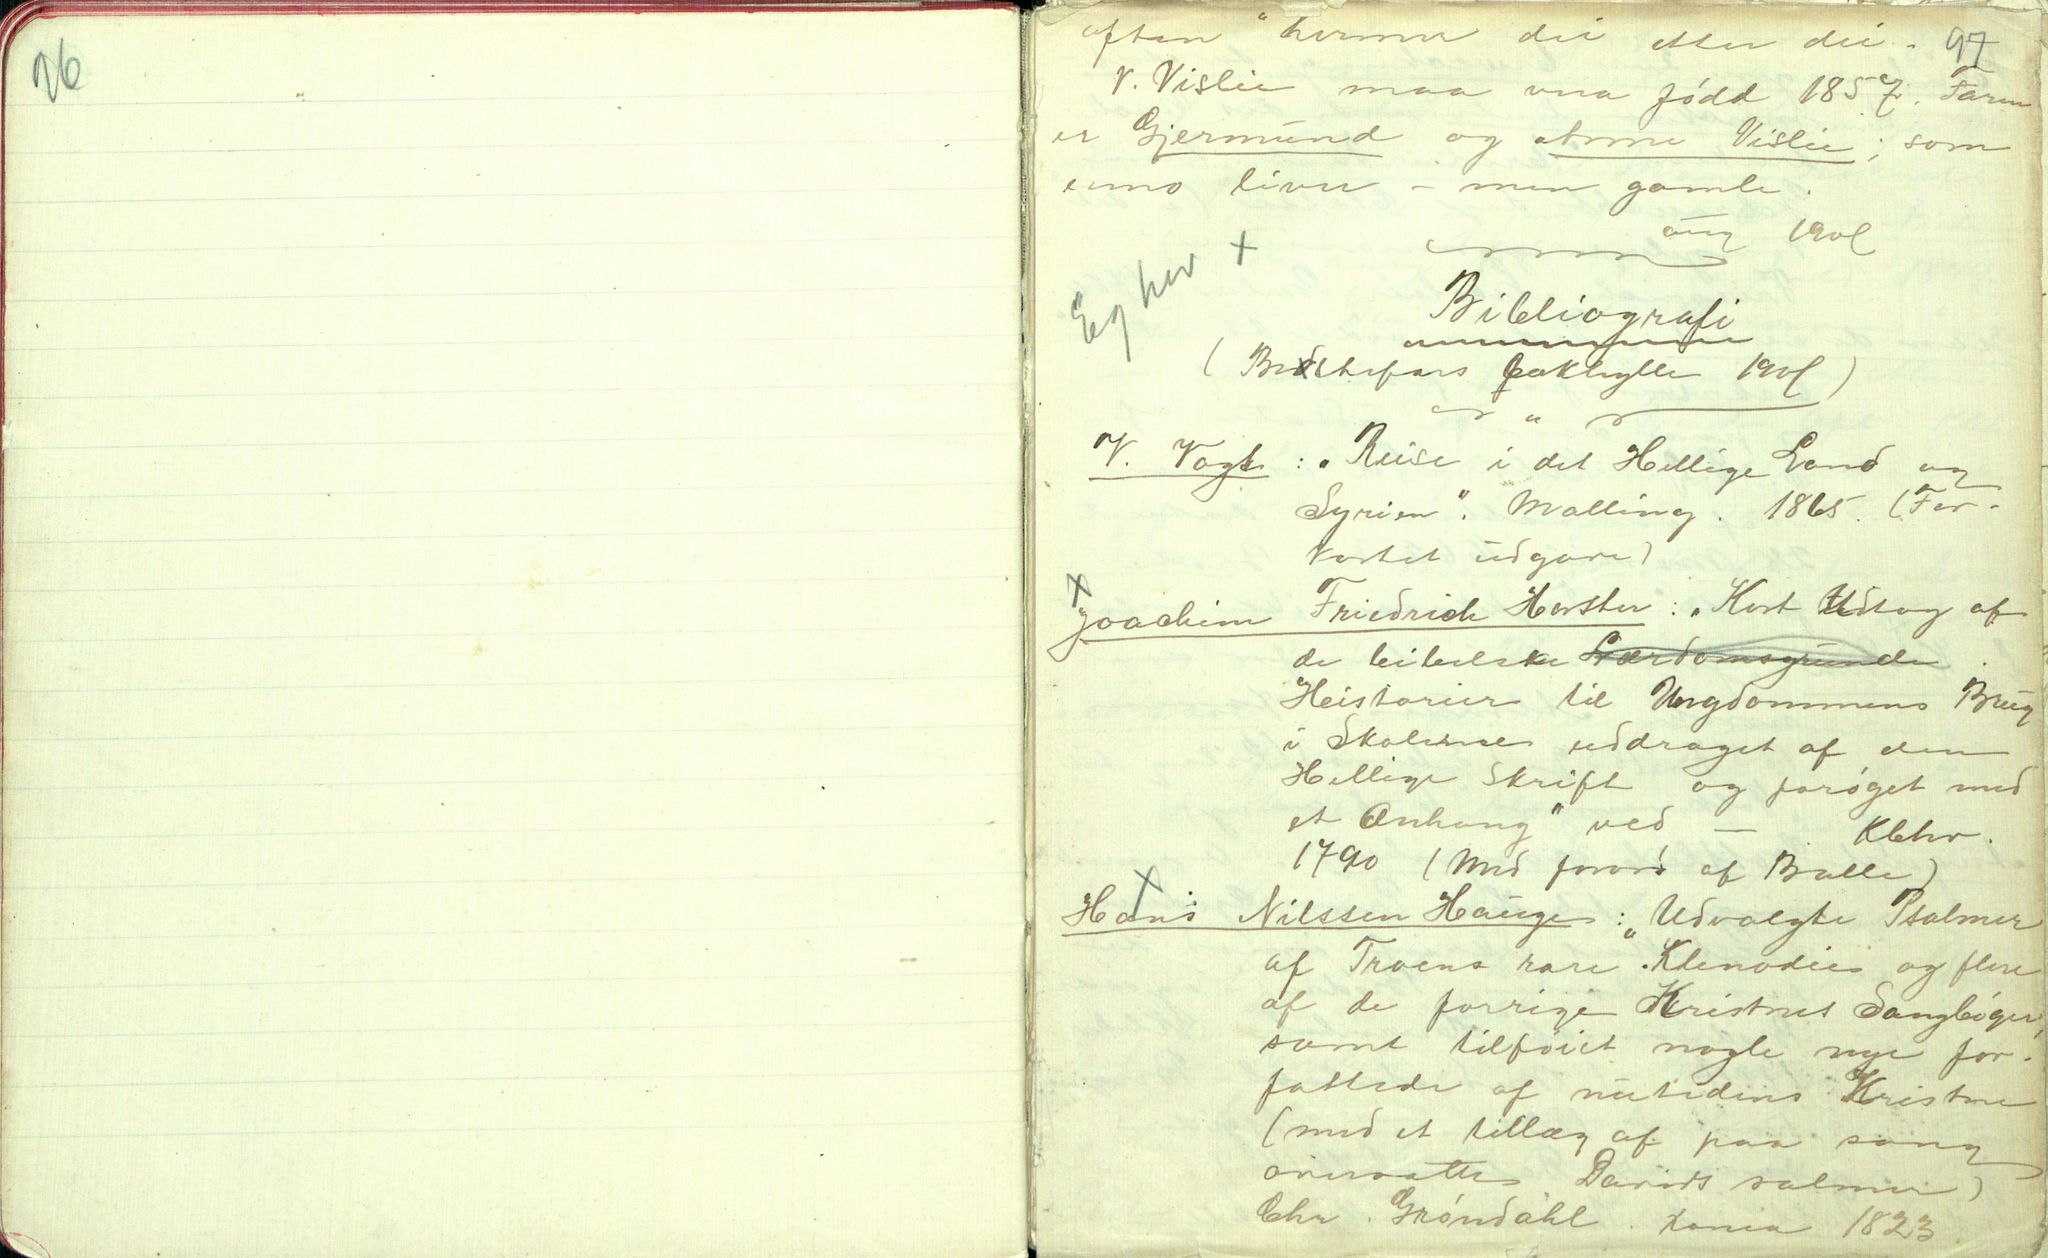 96
97
aftan" hermer dei etter dei.
V. Vislie maa vera fødd 1857. Faren
er Gjermund og Anne Vislie; som
enno liver – men gamle.
aug 1901
Eg hev +
Bibliografi
(Bestefars bokhylle 1901)
V. Vogt: "Reise i det Hellige Land og
Syrien". Malling. 1865. (For-
kortet udgave)
x
Joachim Friedrich Horster: "Kort Udtog af
de bibelske Lærdomsgrunde
Heistorier til Ungdommens Brug
i Skolerne uddraget af den
Hellige Skrift og forøget med
et Anhang" ved — Kbhv.
1790 (Med forord af Balle)
x
Hans Nilssen Hauge: "Udvalgte Psalmer
af Troens rare Klenodie og flere
af de forrige Kristnes Sangbøger,
samt tilføiet nogle nye for-
fattede af nutidens Kristne
(med et tillæg af paa sang
oversatte Davids salmer)
Chr. Grøndahl. Xania 1823